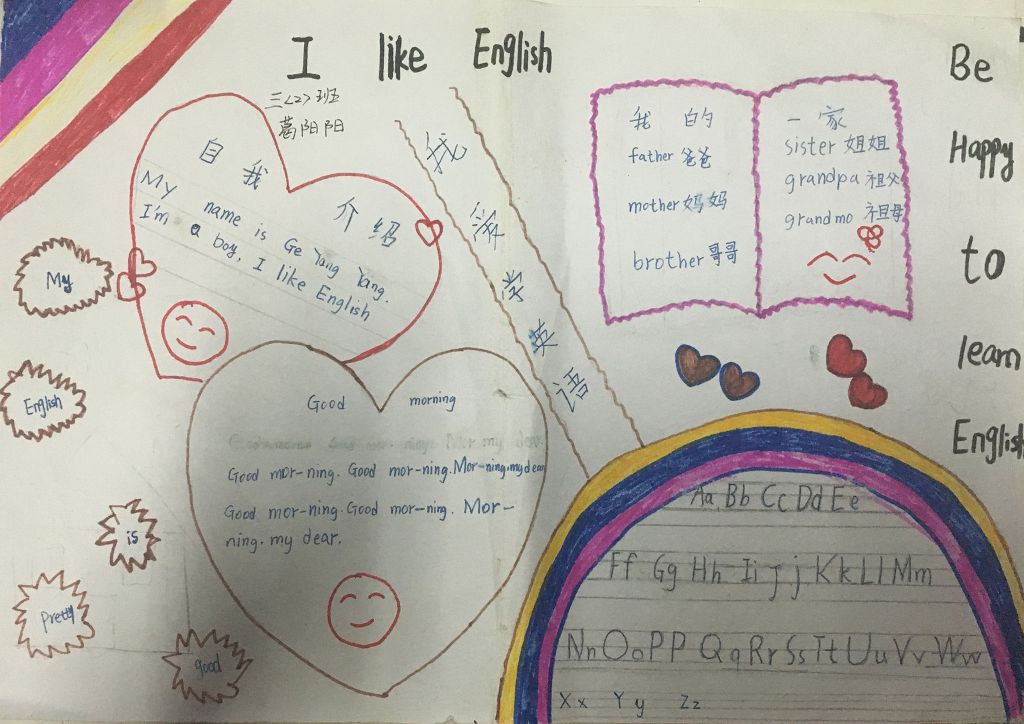 I like English
三<2>班
葛阳阳
自我介绍
My name is Ge Yang Yang.
I'm a boy, I like English
我
学
英
语
我的一家
father 爸爸
mother 妈妈
brother 哥哥
sister 姐姐
grandpa 祖父
grandmo 祖母
Be
Happy
to
learn
English
My
English
is
Pretty
good
Good morning
Good mor-ning. Good mor-ning. Mor-ning. my dear
Good mor-ning. Good mor-ning. Mor-
ning. my dear.
Aa Bb Cc Dd Ee
Ff Gg Hh Ii Jj Kk Ll Mm
Nn Oo PP Qq Rr Ss Tt Uu Vv Ww
Xx Yy Zz